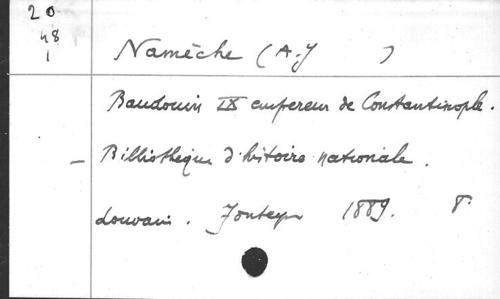 20
48
1
Namèche (A-J )
Baudouin IX empereur de Constantinople.
– Billiothèque d'histoire nationale.
Louvain. Fonteyn 1889. 8°